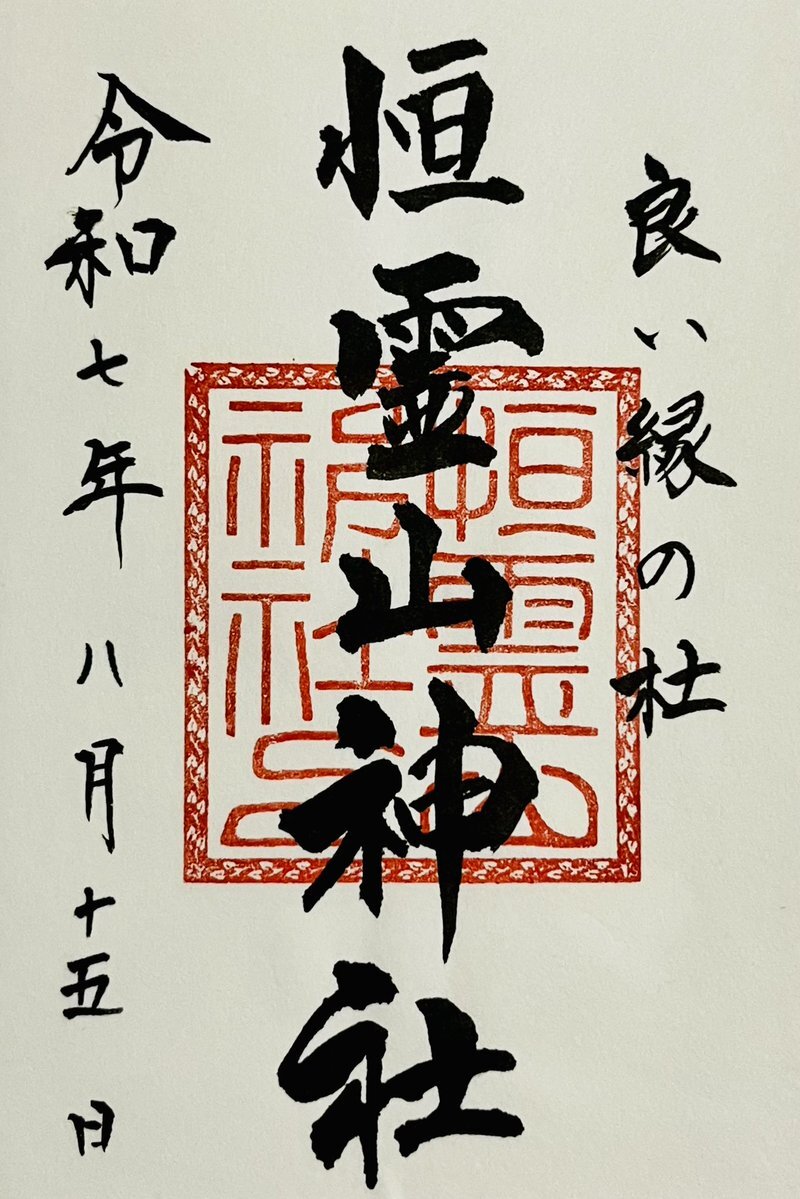 良い縁の杜
恒霊山神社
令和七年八月十五日
恒霊山
神社印